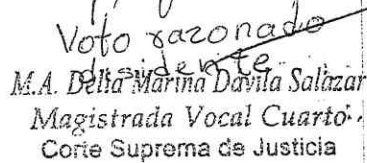 Voto razonado
disidente
M.A. Delia Marina Davila Salazar
Magistrada Vocal Cuarto
Corte Suprema de Justicia